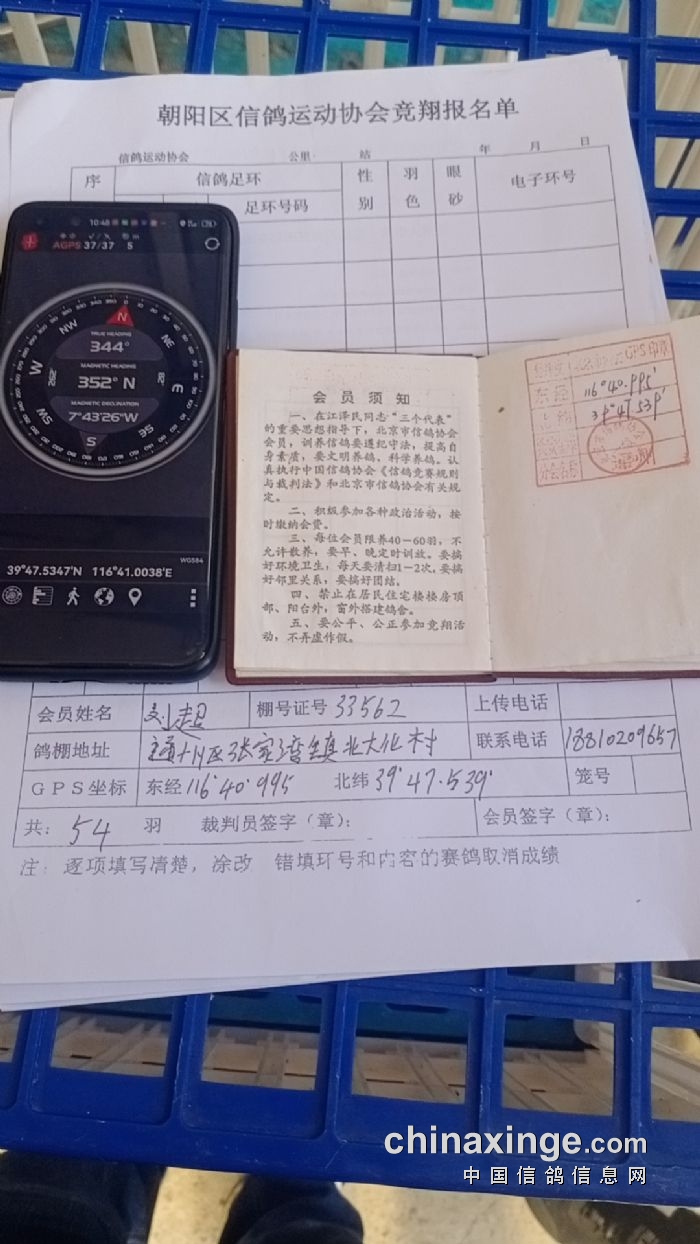 朝阳区信鸽运动协会竞翔报名单
信鸽运动协会 公里 站 年 月 日
序 信鸽足环 性别 羽色 眼砂 电子环号
足环号码
10:48
AGPS 37/37 5
N
NW NE
W E
SW SE
S
TRUE HEADING
344°
MAGNETIC HEADING
352° N
MAGNETIC DECLINATION
7°43'26"W
WGS84
39°47.5347'N 116°41.0038'E
会员须知
一、在江泽民同志“三个代表”
的重要思想指导下，北京市信鸽协会
会员，训养信鸽要遵纪守法，提高自
身素质，要文明养鸽、科学养鸽。认
真执行中国信鸽协会《信鸽竞赛规则
与裁判法》和北京市信鸽协会有关规
定。
二、积极参加各种政治活动，按
时缴纳会费。
三、每位会员限养40—60羽，不
允许散养，要早、晚定时训放。要搞
好环境卫生，每天要清扫1－2次，要搞
好邻里关系，要搞好团结。
四、禁止在居民住宅楼楼房顶
部、阳台外，窗外搭建鸽舍。
五、要公平、公正参加竞翔活
动，不弄虚作假。
GPS印章
东经 116°40.995'
39°47.539'
会员姓名 刘超 棚号证号 33562 上传电话
鸽棚地址 通州区张家湾镇北大化村 联系电话 18810209657
GPS坐标 东经 116°40'995 北纬 39°47.539' 笼号
共： 54 羽 裁判员签字（章）： 会员签字（章）：
注：逐项填写清楚，涂改 错填环号和内容的赛鸽取消成绩
chinaxinge.com
中国信鸽信息网